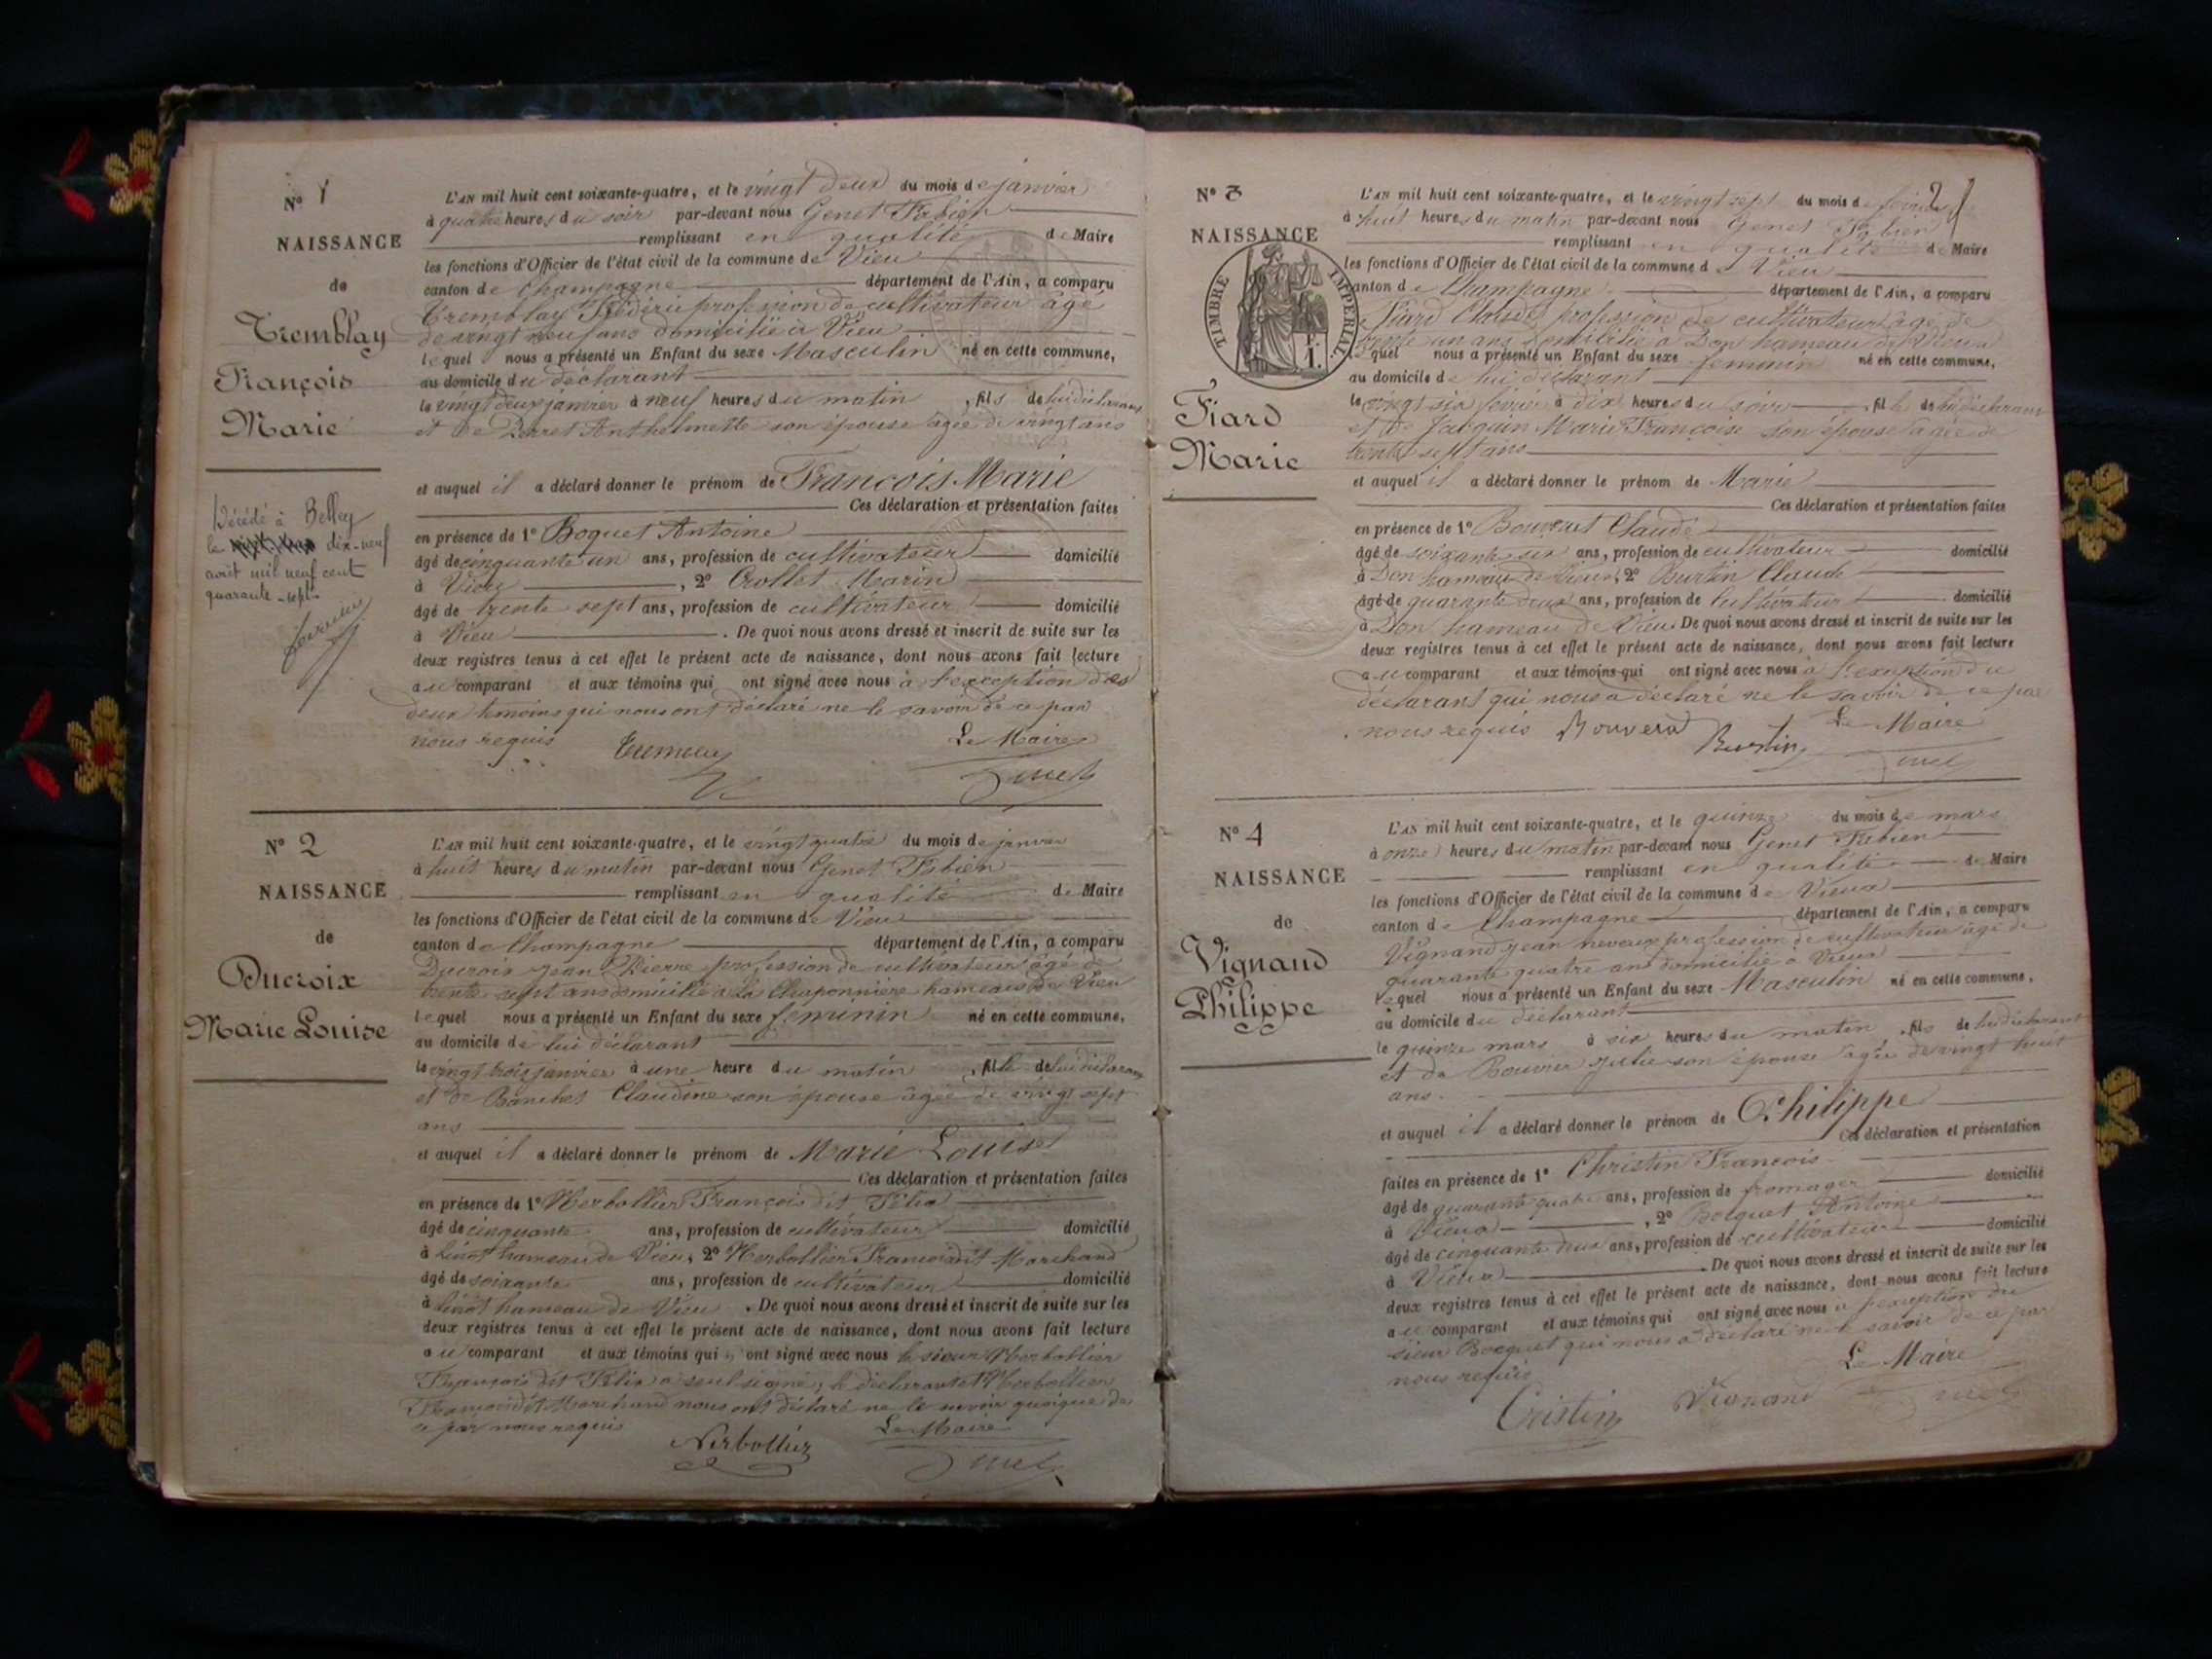 N° 1
NAISSANCE
de
Tremblay
François
Marie
Décédé à Belley
le dix-neuf
août mil neuf cent
quarante-sept
L'AN mil huit cent soixante-quatre, et le vingt deux du mois de janvier
à quatre heures du soir par-devant nous Genet Fabien
remplissant en qualité de Maire
les fonctions d'Officier de l'état civil de la commune de Vieu
canton de Champagne département de l'Ain, a comparu
Tremblay Frédéric profession de cultivateur âgé
de vingt neuf ans domicilié à Vieu
lequel nous a présenté un Enfant du sexe Masculin né en cette commune,
au domicile du déclarant
le vingt deux janvier à neuf heures du matin, fils de lui déclarant
et de Perret Anthelmette son épouse âgée de vingt ans
et auquel il a déclaré donner le prénom de François Marie
Ces déclaration et présentation faites
en présence de 1° Boquet Antoine
âgé de cinquante un ans, profession de cultivateur domicilié
à Vieu, 2° Crollet Marin
âgé de trente sept ans, profession de cultivateur domicilié
à Vieu. De quoi nous avons dressé et inscrit de suite sur les
deux registres tenus à cet effet le présent acte de naissance, dont nous avons fait lecture
au comparant et aux témoins qui ont signé avec nous à l'exception des
deux témoins qui nous ont déclaré ne le savoir de ce par
nous requis Le Maire
N° 2
NAISSANCE
de
Ducroix
Marie Louise
L'AN mil huit cent soixante-quatre, et le vingt quatre du mois de janvier
à huit heures du matin par-devant nous Genet Fabien
remplissant en qualité de Maire
les fonctions d'Officier de l'état civil de la commune de Vieu
canton de Champagne département de l'Ain, a comparu
Ducroix Jean Pierre profession de cultivateur âgé de
trente sept ans domicilié à la Chaponnière hameau de Vieu
lequel nous a présenté un Enfant du sexe féminin né en cette commune,
au domicile de lui déclarant
le vingt trois janvier à une heure du matin, fille de lui déclarant
et de Claudine son épouse âgée de vingt sept
ans
et auquel il a déclaré donner le prénom de Marie Louise
Ces déclaration et présentation faites
en présence de 1° Nerbollier François dit Félix
âgé de cinquante ans, profession de cultivateur domicilié
à hameau de Vieu, 2° Nerbollier François dit Marchand
âgé de soixante ans, profession de cultivateur domicilié
à hameau de Vieu. De quoi nous avons dressé et inscrit de suite sur les
deux registres tenus à cet effet le présent acte de naissance, dont nous avons fait lecture
au comparant et aux témoins qui ont signé avec nous le sieur Nerbollier
François dit Félix a seul signé; le déclarant et Nerbollier
François dit Marchand nous ont déclaré ne le savoir quoique de
ce par nous requis Le Maire
Nerbollier
2
N° 3
NAISSANCE
TIMBRE IMPERIAL
Fiard
Marie
L'AN mil huit cent soixante-quatre, et le vingt sept du mois de février
à huit heures du matin par-devant nous Genet Fabien
remplissant en qualité de Maire
les fonctions d'Officier de l'état civil de la commune de Vieu
canton de Champagne département de l'Ain, a comparu
Fiard Claude profession de cultivateur âgé de
trente un ans domicilié à Don hameau de Vieux
lequel nous a présenté un Enfant du sexe féminin né en cette commune,
au domicile de lui déclarant
le vingt six février à dix heures du soir, fille de lui déclarant
et de Jacquin Marie Françoise son épouse âgée de
trente sept ans
et auquel il a déclaré donner le prénom de Marie
Ces déclaration et présentation faites
en présence de 1° Claude
âgé de soixante six ans, profession de cultivateur domicilié
à Don hameau de Vieux, 2° Burtin Claude
âgé de quarante deux ans, profession de cultivateur domicilié
à Don hameau de Vieu. De quoi nous avons dressé et inscrit de suite sur les
deux registres tenus à cet effet le présent acte de naissance, dont nous avons fait lecture
au comparant et aux témoins qui ont signé avec nous à l'exception du
déclarant qui nous a déclaré ne le savoir de ce par
nous requis Bouverd Burtin Le Maire
N° 4
NAISSANCE
de
Vignand
Philippe
L'AN mil huit cent soixante-quatre, et le quinze du mois de mars
à onze heures du matin par-devant nous Genet Fabien
remplissant en qualité de Maire
les fonctions d'Officier de l'état civil de la commune de Vieux
canton de Champagne département de l'Ain, a comparu
Vignand Jean profession de cultivateur âgé de
quarante quatre ans domicilié à Vieux
lequel nous a présenté un Enfant du sexe Masculin né en cette commune,
au domicile du déclarant
le quinze mars à six heures du matin, fils de lui déclarant
et de Bouvier Julie son épouse âgée de vingt huit
ans
et auquel il a déclaré donner le prénom de Philippe
Ces déclaration et présentation
faites en présence de 1° Christin François
âgé de quarante quatre ans, profession de fromager domicilié
à Vieux, 2° Bocquet Antoine
âgé de cinquante deux ans, profession de cultivateur domicilié
à Vieux. De quoi nous avons dressé et inscrit de suite sur les
deux registres tenus à cet effet le présent acte de naissance, dont nous avons fait lecture
au comparant et aux témoins qui ont signé avec nous à l'exception du
sieur Bocquet qui nous a déclaré ne le savoir de ce par
nous requis Le Maire
Cristin Vignand